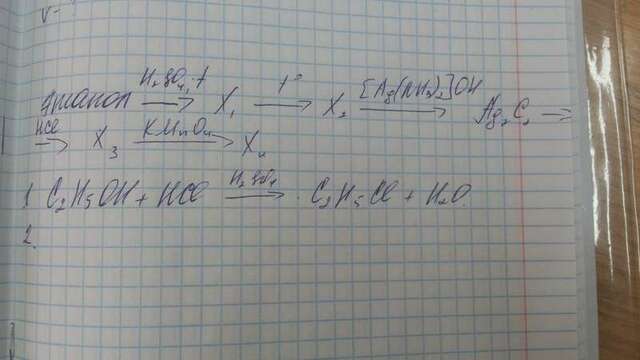 этанол H₂SO₄, t → X₁ t° → X₂ [Ag(NH₃)₂]OH → Ag₂C₂ →
HCl → X₃ KMnO₄ → X₄
1. C₂H₅OH + HCl H₂SO₄ → C₂H₅Cl + H₂O.
2.